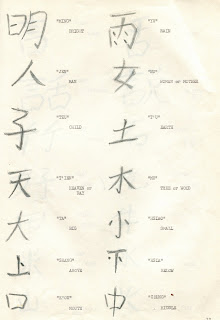 明
"MING"
BRIGHT
雨
"YU"
RAIN
人
"JEN"
MAN
女
WOMAN or MOTHER
子
"TZU"
CHILD
土
"T'U"
EARTH
天
"T'IEN"
HEAVEN or
DAY
木
"MU"
TREE or WOOD
大
"TA"
BIG
小
"HSIAO"
SMALL
上
"SHANG"
ABOVE
下
"HSIA"
BELOW
口
MOUTH
中
"CHUNG"
MIDDLE